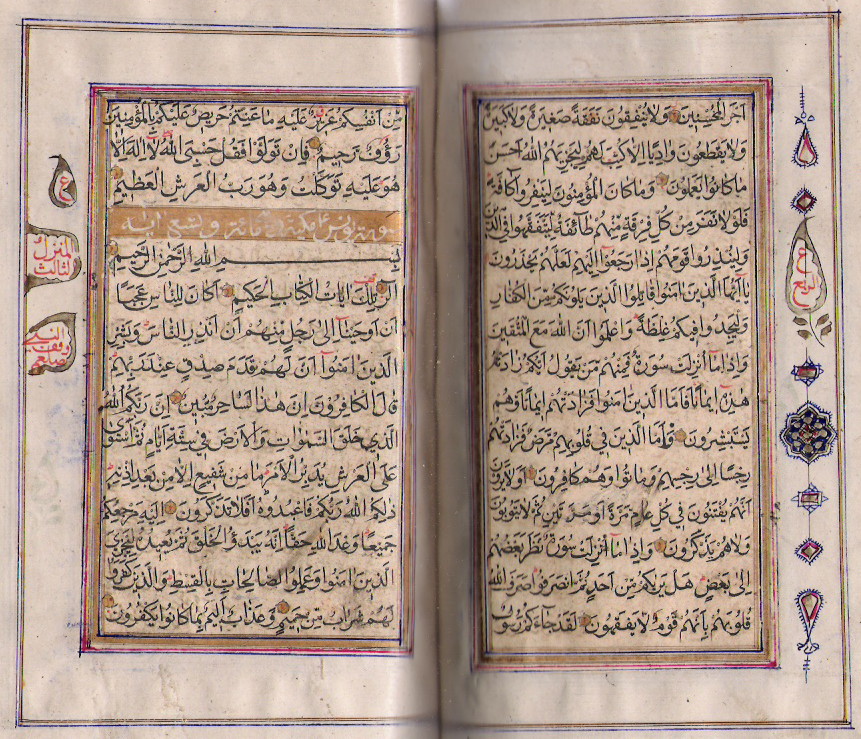 أَجْرَ الْمُحْسِنِينَ وَلَا يُنْفِقُونَ نَفَقَةً صَغِيرَةً وَلَا كَبِيرَةً
وَلَا يَقْطَعُونَ وَادِيًا إِلَّا كُتِبَ لَهُمْ لِيَجْزِيَهُمُ اللَّهُ أَحْسَنَ
مَا كَانُوا يَعْمَلُونَ وَمَا كَانَ الْمُؤْمِنُونَ لِيَنْفِرُوا كَافَّةً
فَلَوْلَا نَفَرَ مِنْ كُلِّ فِرْقَةٍ مِنْهُمْ طَائِفَةٌ لِيَتَفَقَّهُوا فِي الدِّينِ
وَلِيُنْذِرُوا قَوْمَهُمْ إِذَا رَجَعُوا إِلَيْهِمْ لَعَلَّهُمْ يَحْذَرُونَ
يَا أَيُّهَا الَّذِينَ اٰمَنُوا قَاتِلُوا الَّذِينَ يَلُونَكُمْ مِنَ الْكُفَّارِ
وَلْيَجِدُوا فِيكُمْ غِلْظَةً وَاعْلَمُوا أَنَّ اللَّهَ مَعَ الْمُتَّقِينَ
وَإِذَا مَا أُنْزِلَتْ سُورَةٌ فَمِنْهُمْ مَنْ يَقُولُ أَيُّكُمْ زَادَتْهُ
هٰذِهِ إِيمَانًا فَأَمَّا الَّذِينَ اٰمَنُوا فَزَادَتْهُمْ إِيمَانًا وَهُمْ
يَسْتَبْشِرُونَ وَأَمَّا الَّذِينَ فِي قُلُوبِهِمْ مَرَضٌ فَزَادَتْهُمْ
رِجْسًا إِلَى رِجْسِهِمْ وَمَاتُوا وَهُمْ كَافِرُونَ أَوَلَا يَرَوْنَ
أَنَّهُمْ يُفْتَنُونَ فِي كُلِّ عَامٍ مَرَّةً أَوْ مَرَّتَيْنِ ثُمَّ لَا يَتُوبُونَ
وَلَا هُمْ يَذَّكَّرُونَ وَإِذَا مَا أُنْزِلَتْ سُورَةٌ نَظَرَ بَعْضُهُمْ
إِلَى بَعْضٍ هَلْ يَرَاكُمْ مِنْ أَحَدٍ ثُمَّ انْصَرَفُوا صَرَفَ اللَّهُ
قُلُوبَهُمْ بِأَنَّهُمْ قَوْمٌ لَا يَفْقَهُونَ لَقَدْ جَاءَكُمْ رَسُولٌ
ع
الربع
مِنْ أَنْفُسِكُمْ عَزِيزٌ عَلَيْهِ مَا عَنِتُّمْ حَرِيصٌ عَلَيْكُمْ بِالْمُؤْمِنِينَ
رَؤُفٌ رَحِيمٌ فَإِنْ تَوَلَّوْا فَقُلْ حَسْبِيَ اللَّهُ لَا إِلٰهَ إِلَّا
هُوَ عَلَيْهِ تَوَكَّلْتُ وَهُوَ رَبُّ الْعَرْشِ الْعَظِيمِ
سورة يونس مكية مائة وتسع اية
بِسْمِ اللَّهِ الرَّحْمٰنِ الرَّحِيمِ
الٓرٰ تِلْكَ اٰيَاتُ الْكِتَابِ الْحَكِيمِ أَكَانَ لِلنَّاسِ عَجَبًا
أَنْ أَوْحَيْنَا إِلَى رَجُلٍ مِنْهُمْ أَنْ أَنْذِرِ النَّاسَ وَبَشِّرِ
الَّذِينَ اٰمَنُوا أَنَّ لَهُمْ قَدَمَ صِدْقٍ عِنْدَ رَبِّهِمْ
قَالَ الْكَافِرُونَ إِنَّ هٰذَا لَسَاحِرٌ مُبِينٌ إِنَّ رَبَّكُمُ اللَّهُ
الَّذِي خَلَقَ السَّمٰوَاتِ وَالْأَرْضَ فِي سِتَّةِ أَيَّامٍ ثُمَّ اسْتَوَى
عَلَى الْعَرْشِ يُدَبِّرُ الْأَمْرَ مَا مِنْ شَفِيعٍ إِلَّا مِنْ بَعْدِ إِذْنِهِ
ذٰلِكُمُ اللَّهُ رَبُّكُمْ فَاعْبُدُوهُ أَفَلَا تَذَكَّرُونَ إِلَيْهِ مَرْجِعُكُمْ
جَمِيعًا وَعْدَ اللَّهِ حَقًّا إِنَّهُ يَبْدَؤُ الْخَلْقَ ثُمَّ يُعِيدُهُ لِيَجْزِيَ
الَّذِينَ اٰمَنُوا وَعَمِلُوا الصَّالِحَاتِ بِالْقِسْطِ وَالَّذِينَ كَفَرُوا
لَهُمْ شَرَابٌ مِنْ حَمِيمٍ وَعَذَابٌ أَلِيمٌ بِمَا كَانُوا يَكْفُرُونَ
ع
المنزل
الثالث
وقف النبي
صلعم